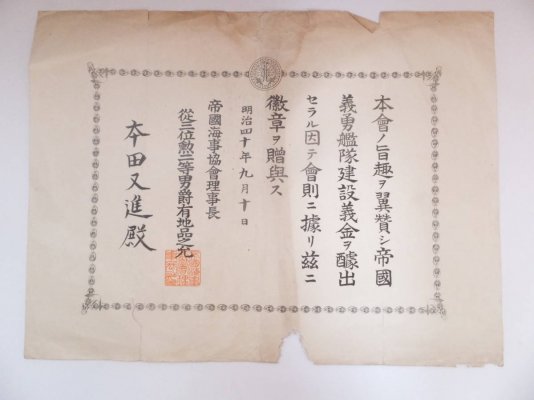 本會ノ旨趣ヲ翼贊シ帝國
義勇艦隊建設義金ヲ醵出
セラル因テ會則ニ據リ茲ニ
徽章ヲ贈與ス
明治四十年九月十日
帝國海事協會理事長
從三位勲二等男爵有地品之允
本田又進殿